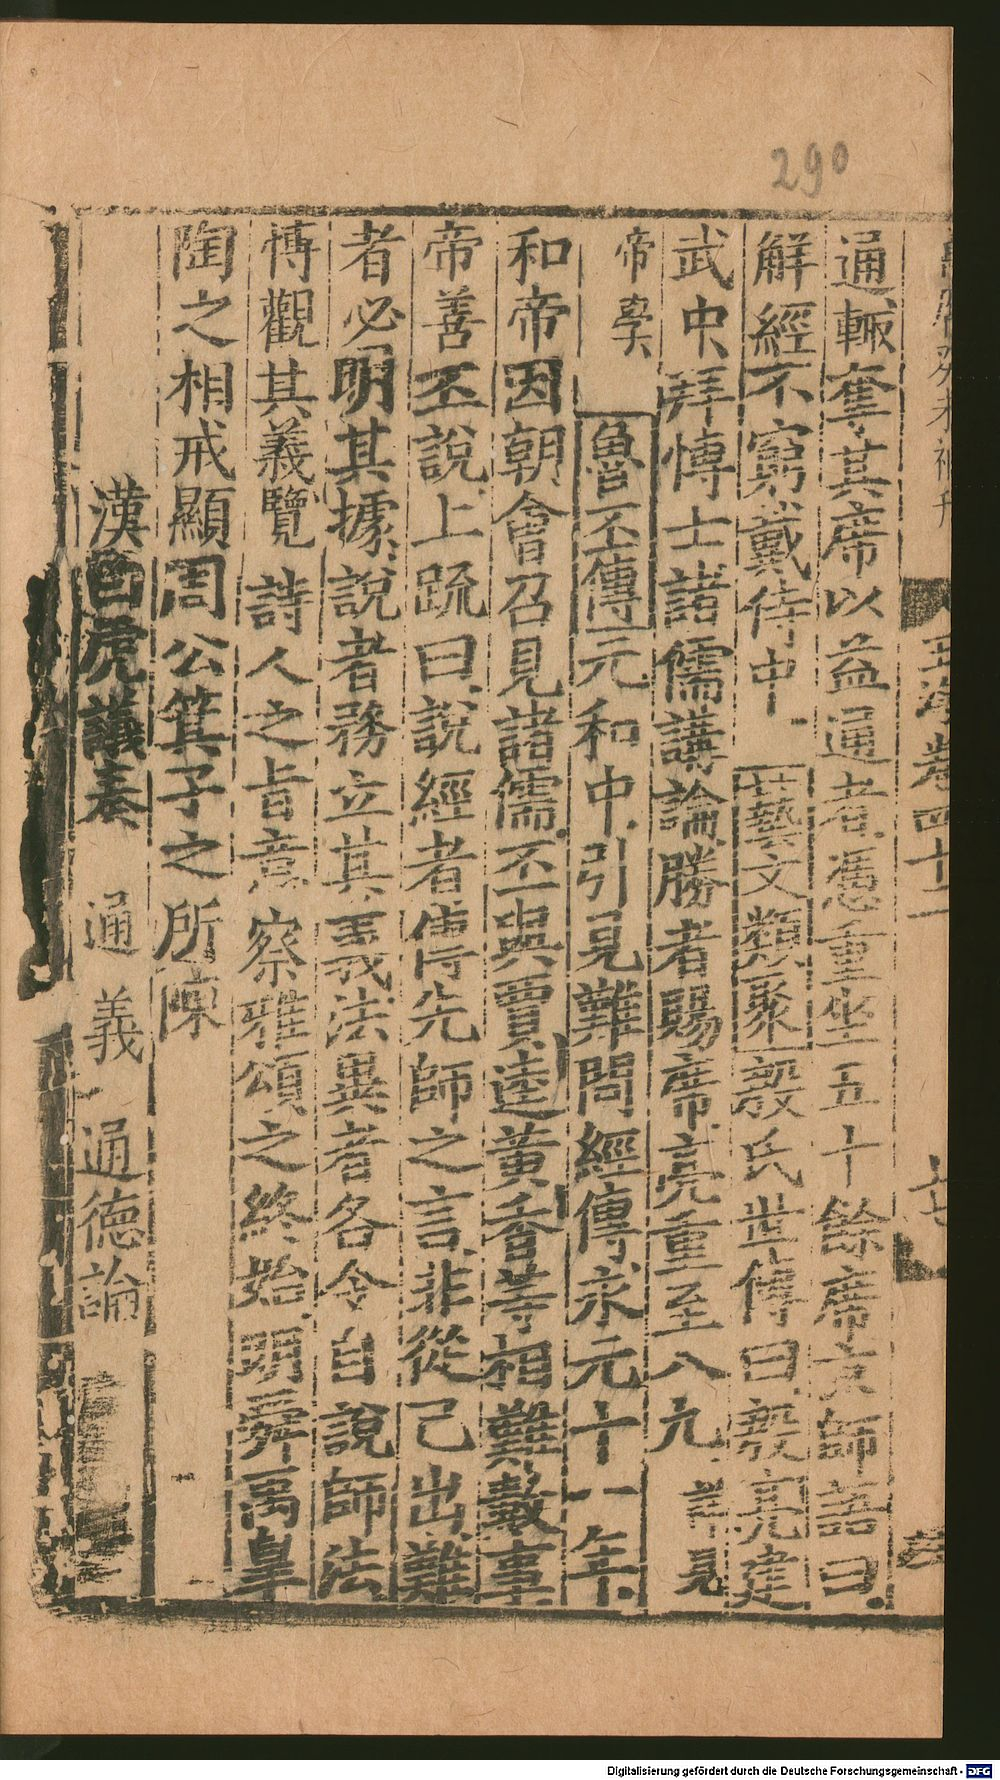 290
玉海卷四十二
通輒奪其席以益通者憑重坐五十餘席京師語曰
解經不窮戴侍中 藝文類聚殷氏世傳曰殷亮建
武中拜博士諸儒講論勝者賜席亮重至八九 詳見
帝學 魯丕傳元和中引見難問經傳永元十一年
和帝因朝會召見諸儒丕與賈逵黃香等相難數事
帝善丕說上疏曰說經者傳先師之言非從己出難
者必明其據說者務立其義法異者各令自說師法
博觀其義覽詩人之旨意察雅頌之終始明舜禹皐
陶之相戒顯周公箕子之所陳
漢白虎議奏 通義 通德論
Digitalisierung gefördert durch die Deutsche Forschungsgemeinschaft - DFG